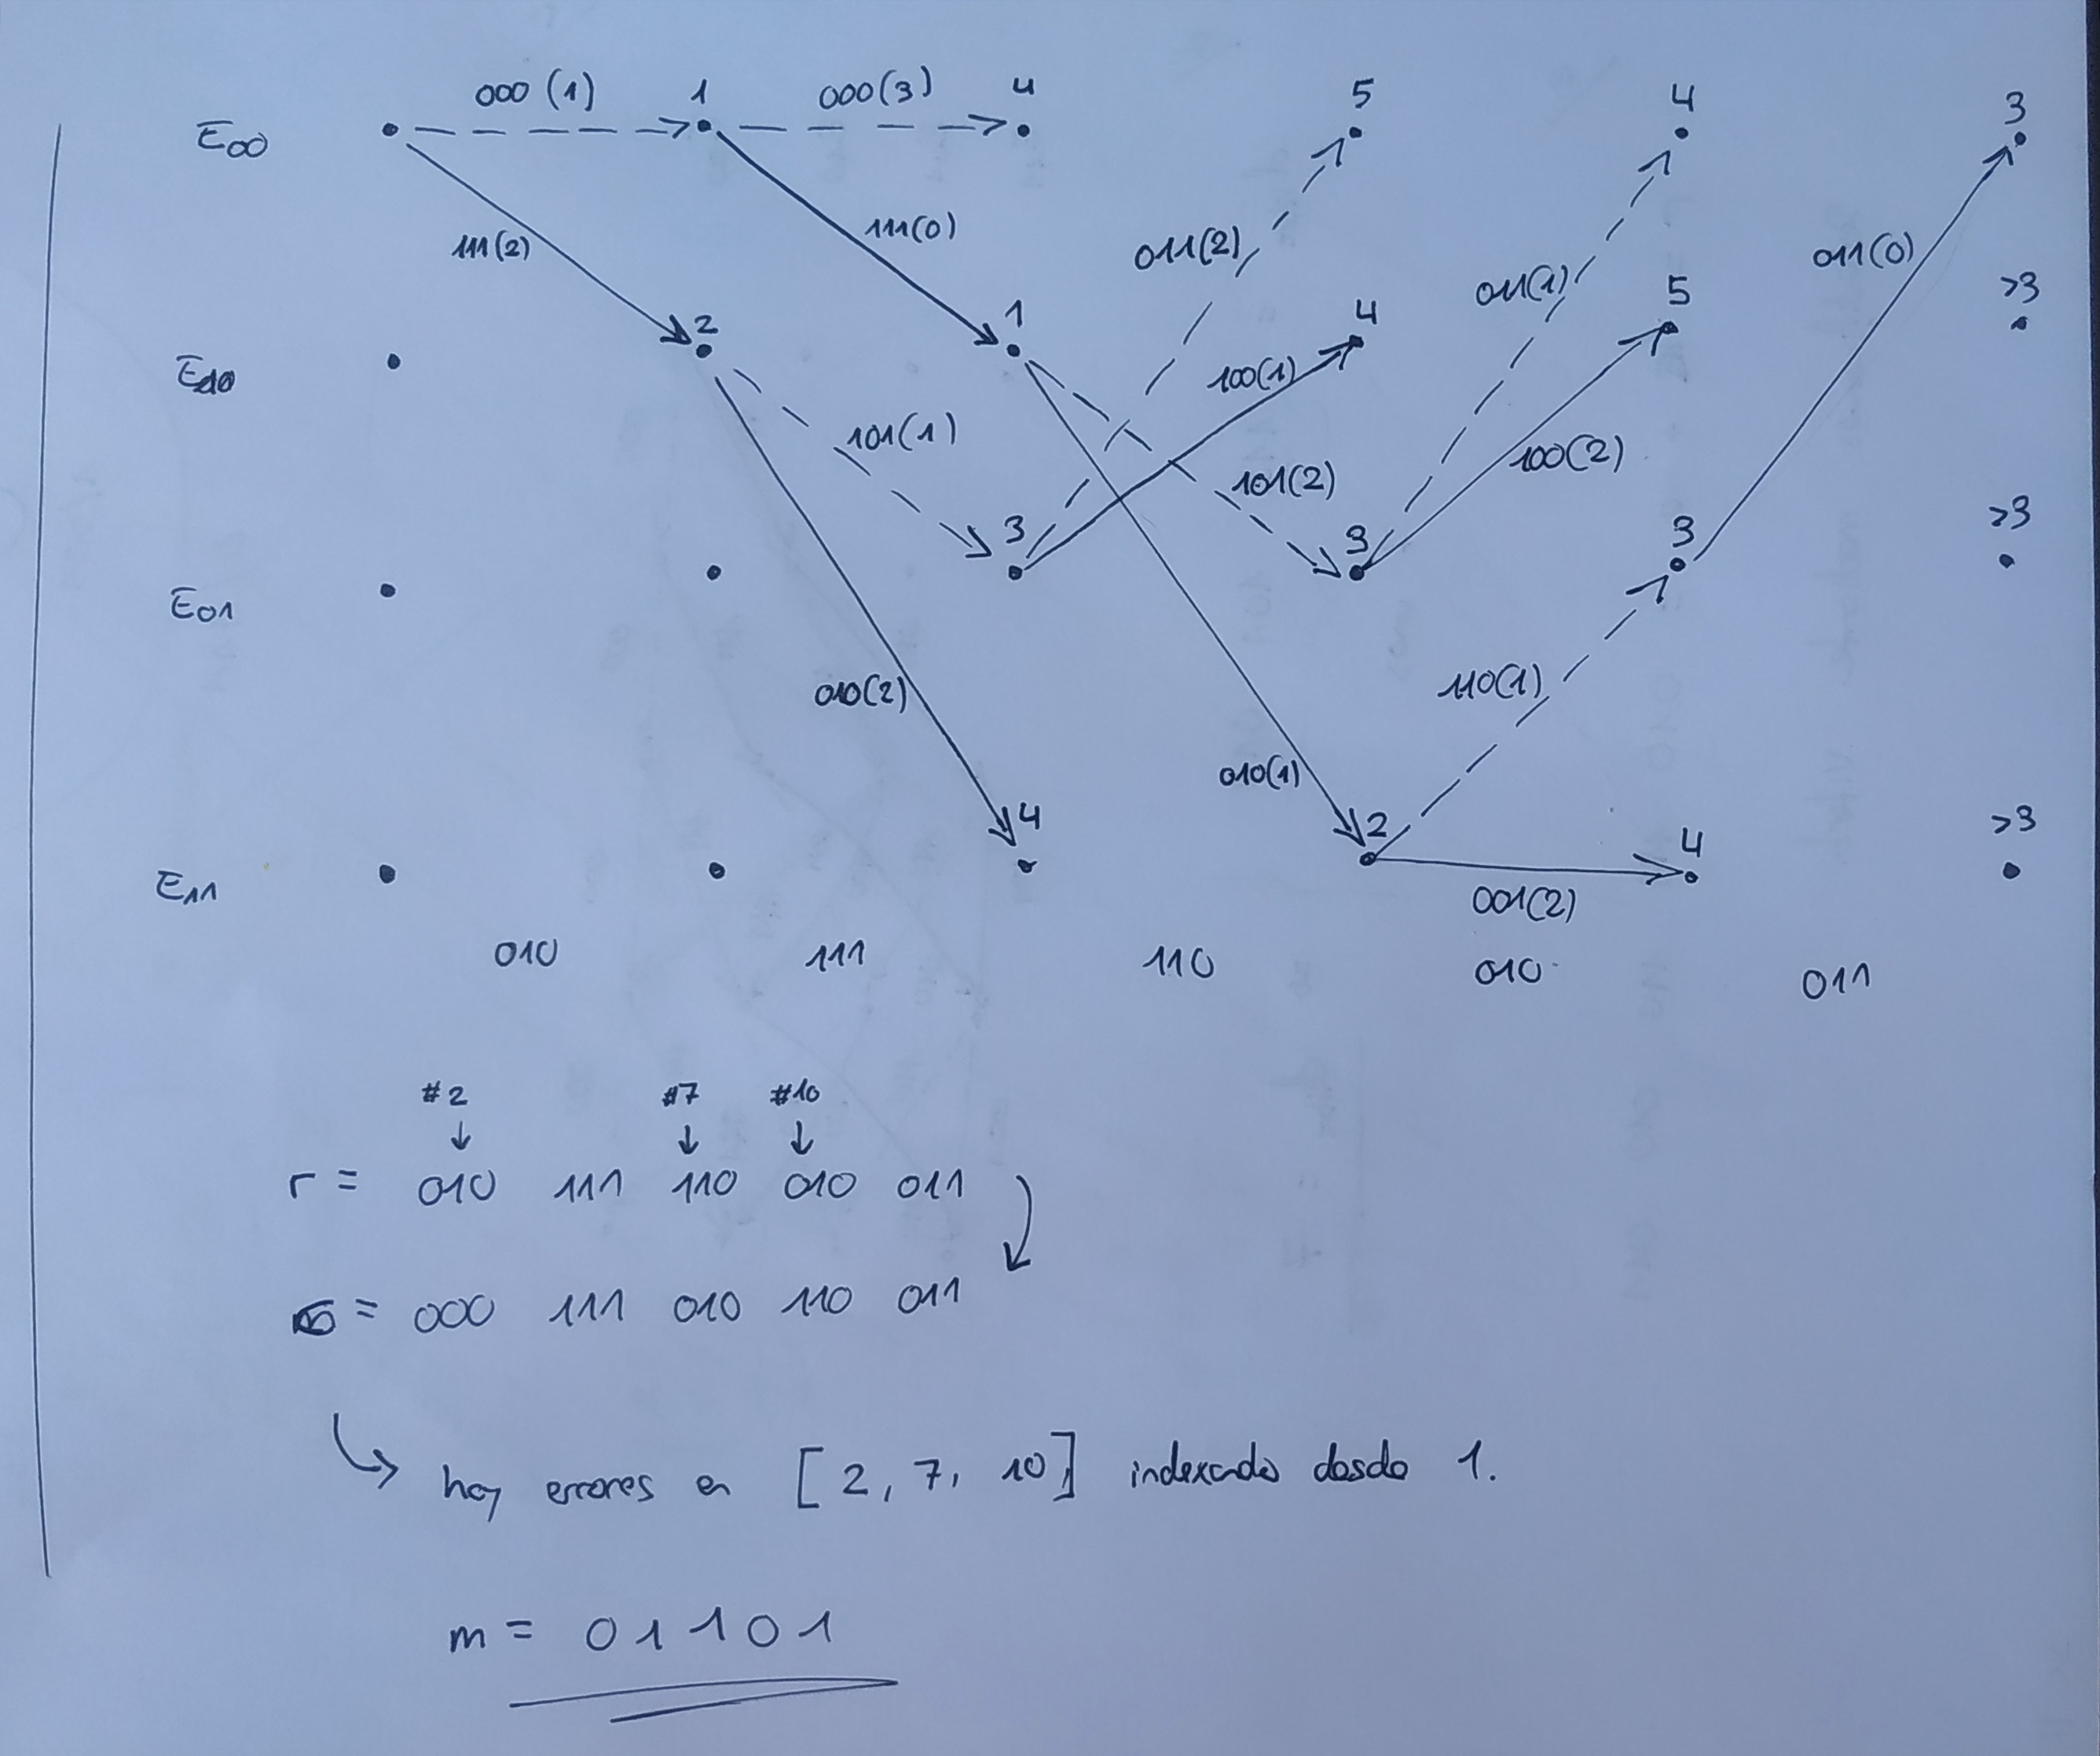 000 (1) 1 000(3) 4 5 4 3
E00
111(2) 111(0) 011(2) 011(1) 011(0)
E10 2 1 4 5 >3
101(1) 100(1) 101(2) 100(2)
E01 3 3 3 >3
010(2) 010(1) 110(1)
E11 4 2 4 >3
001(2)
010 111 110 010 011
#2 #7 #10
r = 010 111 110 010 011
= 000 111 010 110 011
hay errores en [2, 7, 10] indexando desde 1.
m = 01101